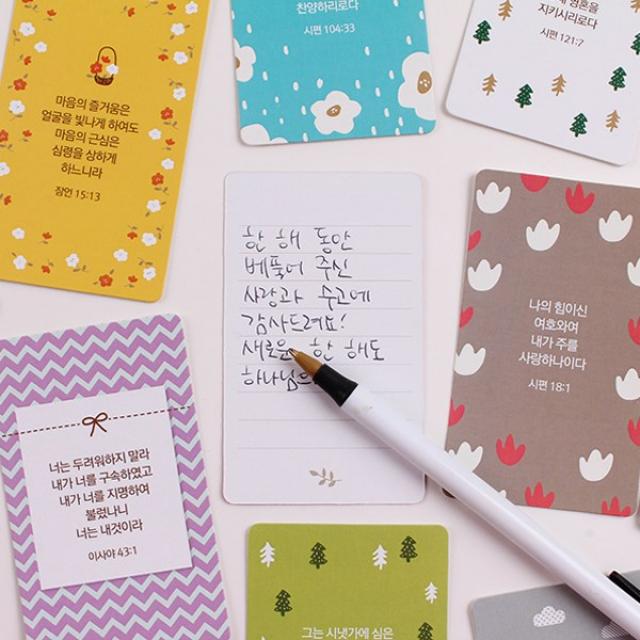 마음의 즐거움은
얼굴을 빛나게 하여도
마음의 근심은
심령을 상하게
하느니라
잠언 15:13
찬양하리로다
시편 104:33
영혼을
지키시리로다
시편 121:7
한 해 동안
베풀어 주신
사랑과 수고에
감사드려요!
새로운 한 해도
하나님의
나의 힘이신
여호와여
내가 주를
사랑하나이다
시편 18:1
너는 두려워하지 말라
내가 너를 구속하였고
내가 너를 지명하여
불렀나니
너는 내것이라
이사야 43:1
그는 시냇가에 심은